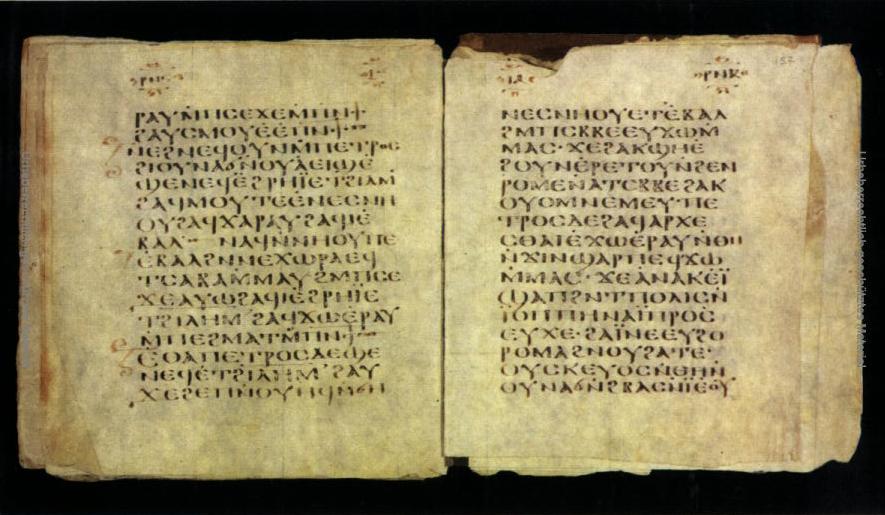 ⲣⲁⲩ·ⲙ̀ⲡⲥⲉϫⲉⲙ̀ⲡⲛ⳨
ϩⲁⲩⲥⲙⲟⲩⲉ̀ⲉ̀ⲡⲛ⳨
ⲛⲉϩⲛⲉϥⲟⲩⲛⲙ̀ⲡⲉⲧⲣⲟⲥ
ϩⲓⲟⲩⲛⲁϭⲛ̀ⲟⲩⲁⲉⲓϣⲉ
ϣⲉⲛⲉϥⲉ̀ϩⲣⲏⲓ̈ⲉ̀ⲧϩⲓⲗⲙ
ϩⲁϥⲙⲟⲩⲧⲉⲉ̀ⲛⲉⲥⲛⲏ
ⲟⲩϩⲁϥⲭⲁⲣⲁⲩ·ϩⲁϥⲓ̈ⲉ̀
ⲃⲁⲗ· ⲛⲁϥⲛ̀ⲛⲏⲟⲩⲡⲉ
ⲉ̀ⲃⲁⲗϩⲛⲛⲉⲭⲱⲣⲁⲉϥ
ⲧⲥⲁⲃⲁⲙ̀ⲙⲁⲩϩⲙ̀ⲡⲥⲉ
ϫⲉⲁⲩⲱϩⲁϥⲓ̈ⲉ̀ϩⲣⲏⲓ̈ⲉ̀
ⲧϩⲓⲗⲏⲙ·ϩⲁϥϫⲱⲉ̀ⲣⲁⲩ
ⲙ̀ⲡⲉϩⲙⲁⲧⲙ̀ⲡⲛ⳨
ⲉⲑⲟⲁⲡⲉⲧⲣⲟⲥⲇⲉϣⲉ
ⲛⲉϥⲉ̀ⲧϩⲓⲗⲏⲙ·ϩⲁⲩ
ⲓⲁ ⲣⲛⲃ
ⲛⲉⲥⲛⲏⲟⲩⲉ·ⲧⲉ̀ⲃⲁⲗ
ϩⲙⲡⲥⲃⲃⲉⲉⲩϫⲱⲙ̀
ⲙⲁⲥ·ϫⲉϩⲁⲕϣⲏⲉ̀
ϩⲟⲩⲛⲉ̀ⲣⲉⲧⲟⲩⲛ̀ϩⲉⲛ
ⲣⲟⲙⲉⲛⲁⲧⲥⲃⲃⲉϩⲁⲕ
ⲟⲩⲟⲙⲛⲉⲙⲉⲩ·ⲡⲉ
ⲧⲣⲟⲥⲇⲉϩⲁϥⲁⲣⲭⲉ
ⲥⲑⲁⲓⲉ̀ϫⲱⲉ̀ⲣⲁⲩⲛ̀ⲑⲏ
ⲛ̀ϫⲓⲛϣⲁⲣⲡⲉϥϫⲱ
ⲙ̀ⲙⲁⲥ·ϫⲉⲁⲛⲁⲕⲉⲓ̈
ϣⲁⲡϩⲛⲧⲡⲟⲗⲓⲥⲛ̀
ⲓ̈ⲟⲡⲡⲏⲛⲁⲓ̈ⲡⲣⲟⲥ
ⲉⲩⲭⲉ·ϩⲁⲓ̈ⲛⲉⲉⲩϩⲟ
ⲣⲟⲙⲁϩⲛⲟⲩϩⲁⲧⲉ·
ⲟⲩⲥⲕⲉⲩⲟⲥⲛ̀ⲑⲏⲛ̀
ⲟⲩⲛⲁϭⲛ̀ϩⲃⲁⲥⲛ̀ⲓ̈ⲉⲟⲩ